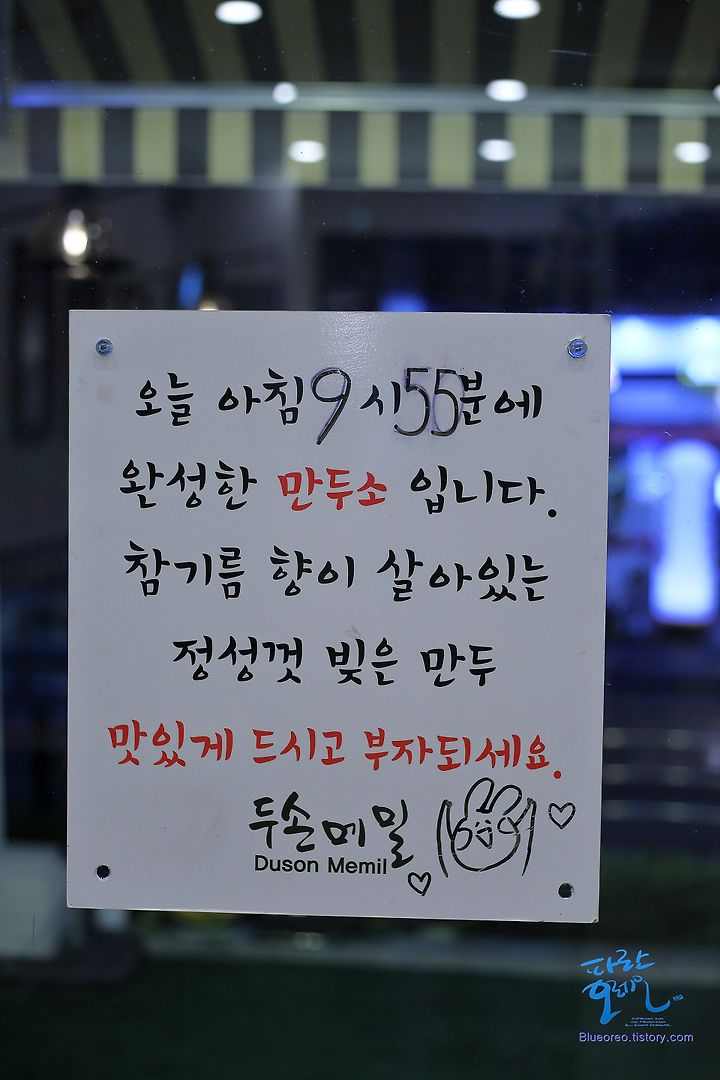 오늘 아침 9시 55분에
완성한 만두소 입니다.
참기름 향이 살아있는
정성껏 빚은 만두
맛있게 드시고 부자되세요.
두손메밀
Duson Memil
파란오레오
Blueoreo.tistory.com